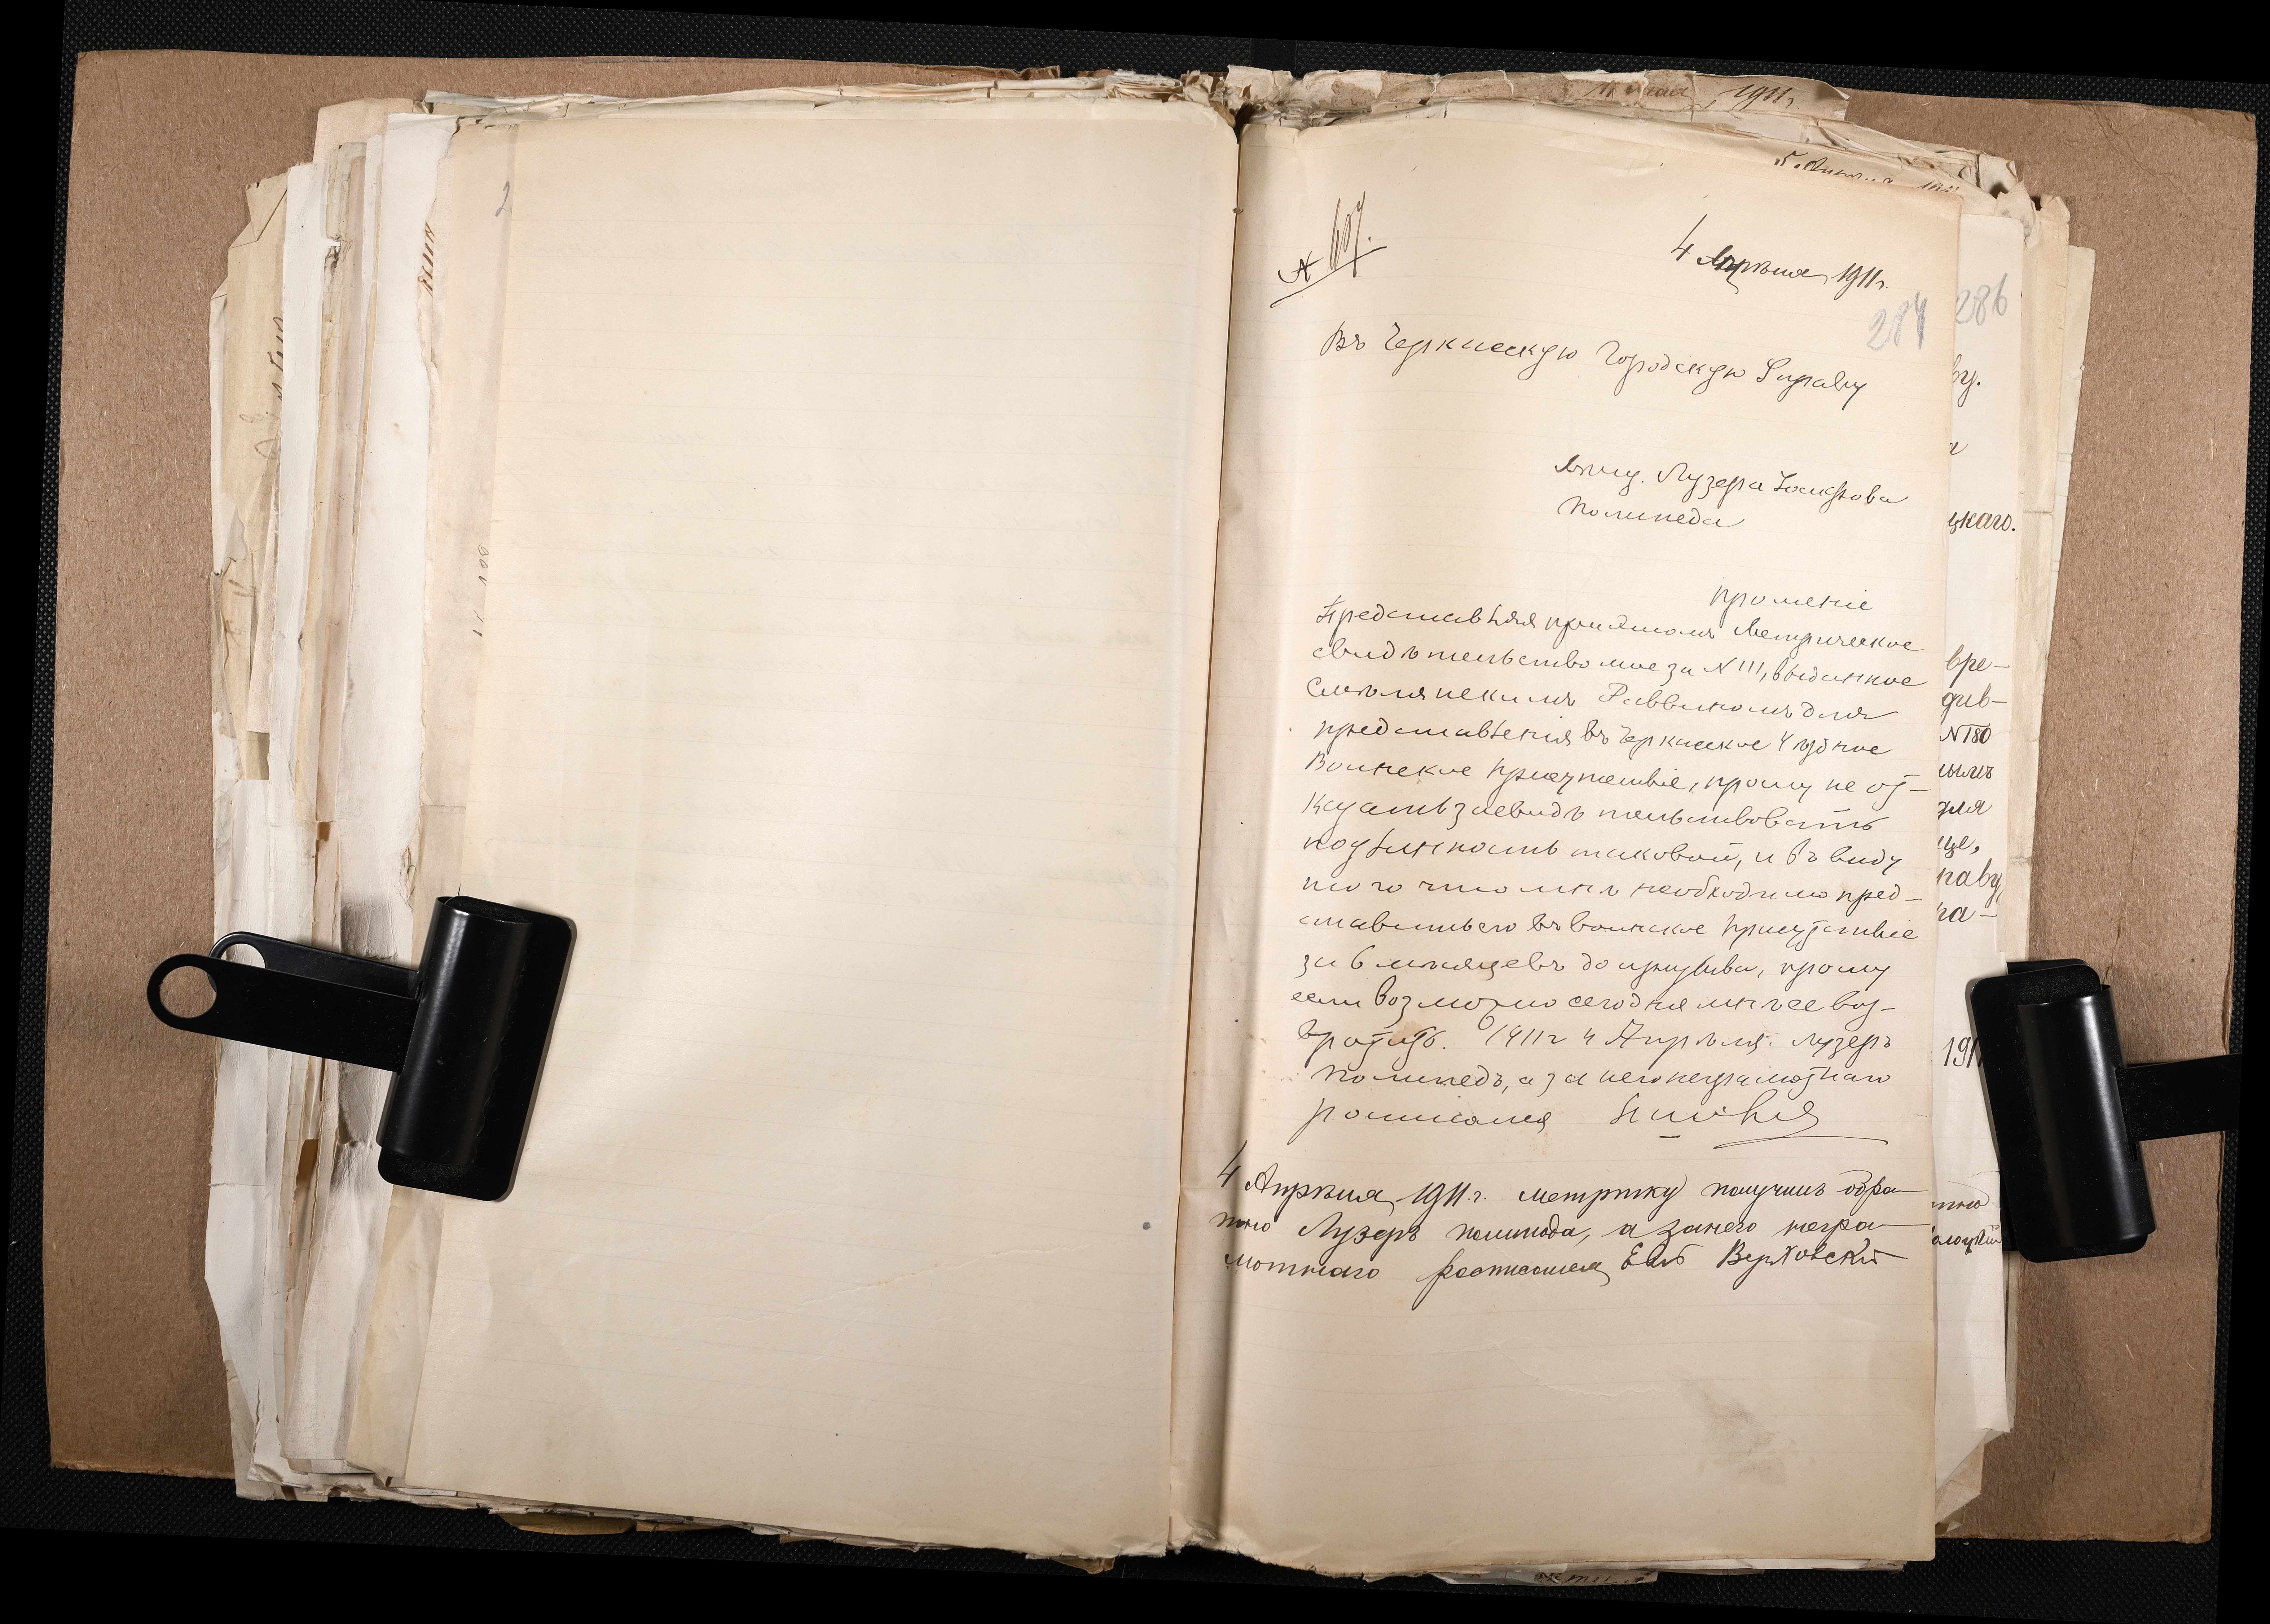 4 Апрѣля 1911 г.
284
Въ Черкасскую Городскую Управу
мѣщ. Лузера
Полинеда
прошеніе
Представляя при этомъ Метрическое
свидѣтельство мое за № 111, выданное
Смѣлянскимъ Раввиномъ для
представленія въ Черкасское Уѣздное
Воинское Присутствіе, прошу не от-
казать засвидѣтельствовать
подлинность таковой, и въ виду
того что мнѣ необходимо пред-
ставить его въ воинское присутствіе
за 6 мѣсяцевъ до призыва, прошу
если возможно сегодня мнѣ ее воз-
вратить. 1911 г 4 Апрѣля. Лузеръ
Полинедъ, а за него неграмотнаго
росписался
4 Апрѣля 1911 г. метрику получилъ обра-
тно Лузеръ Полинеда, а за него негра-
мотнаго росписался Верховскій
286
ву.
цкаго.
вре-
див-
№ 180
нымъ
для
це,
раву
ра-
191
тно
5 Апрѣля
1911 г.